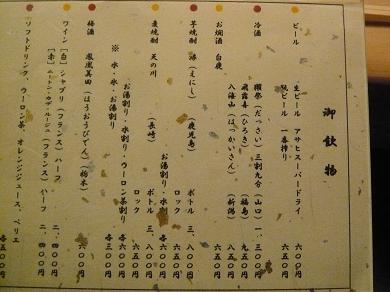 御飲物
ビール 生ビール アサヒスーパードライ 六〇〇円
瓶ビール 一番搾り 六五〇円
冷酒 獺祭(だっさい)三割九分(山口) 一、三〇〇円
飛露喜(ひろき)(福島) 九五〇円
八海山(はっかいさん)(新潟) 八五〇円
お燗酒 白鹿 六五〇円
芋焼酎 (えにし)(鹿児島) ボトル 三、八〇〇円
ロック 六五〇円
お湯割り・水割り 六五〇円
麦焼酎 天の川(長崎) ボトル 三、八〇〇円
ロック 六五〇円
お湯割り・水割り・ウーロン茶割り 六五〇円
※ 氷・水・お湯割り 各三〇〇円
梅酒 鳳凰美田(ほうおうびでん)(栃木) 六〇〇円
ワイン [白] シャブリ(フランス)ハーフ 二、四〇〇円
[赤] (フランス)ハーフ 二、四〇〇円
ソフトドリンク、ウーロン茶、オレンジジュース、ペリエ 各五〇〇円